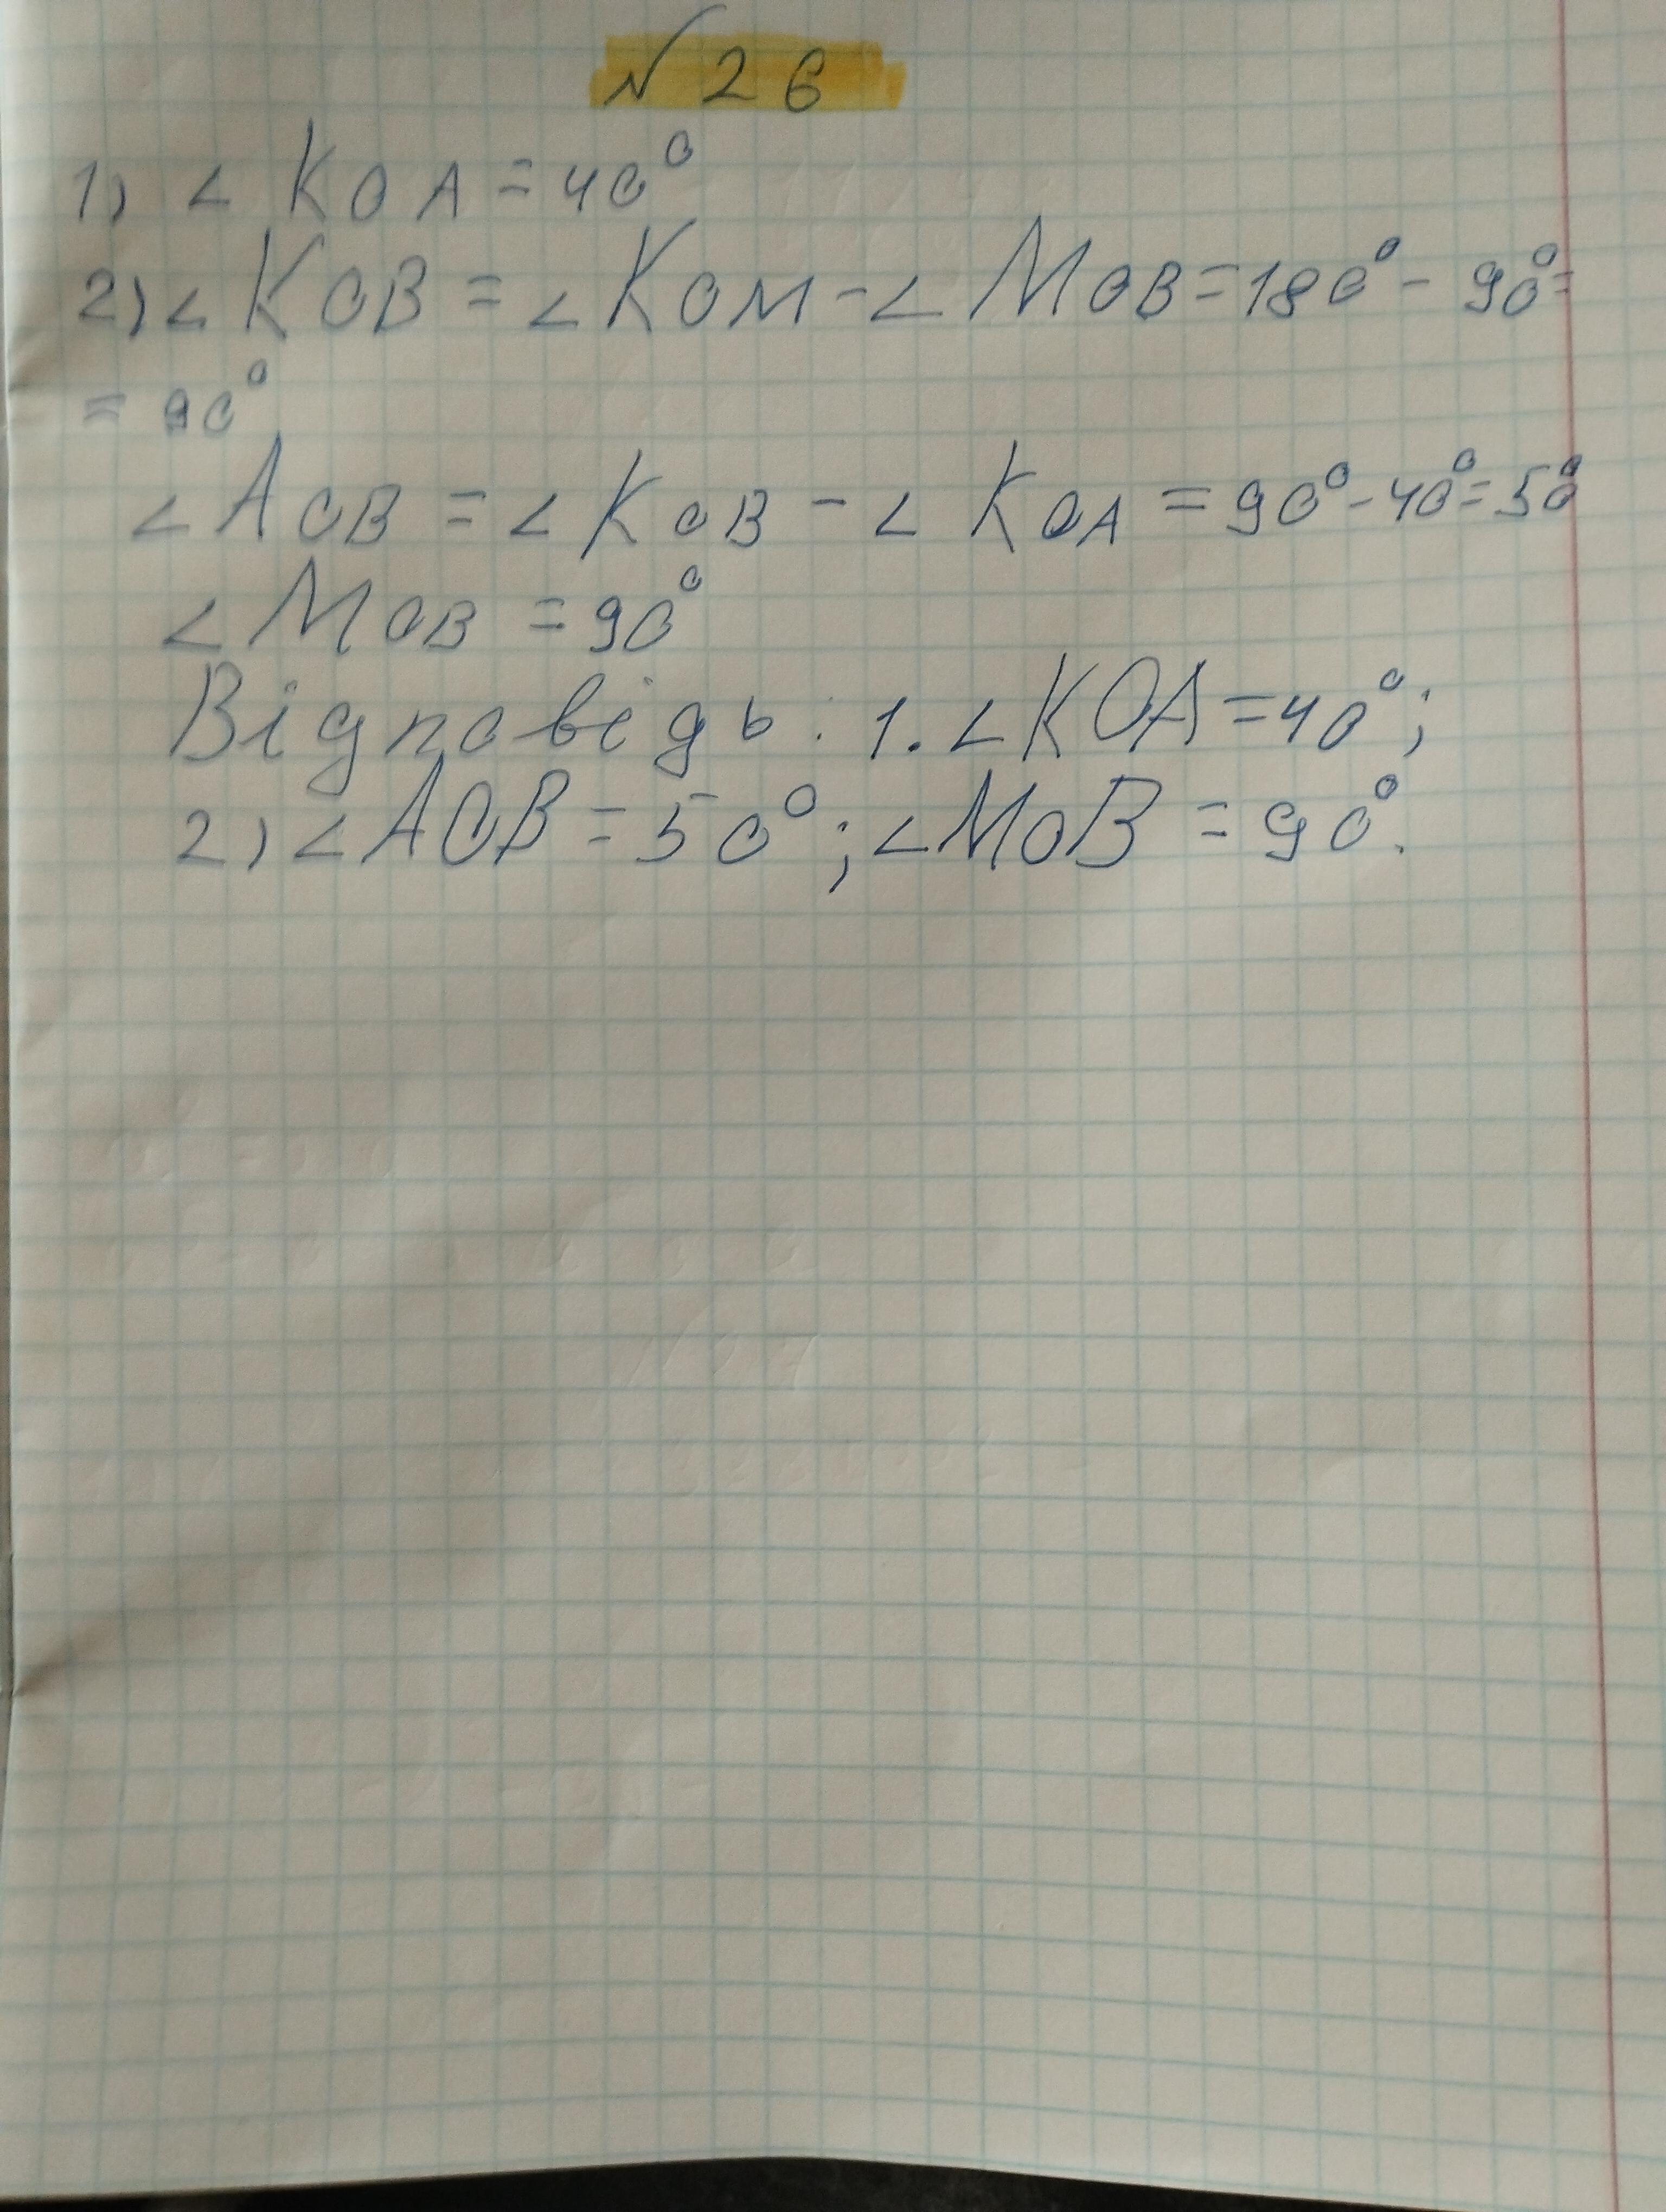 № 26
1) ∠ KOA = 40°
2) ∠ KOB = ∠ KOM - ∠ MOB = 180° - 90° =
= 90°
∠ AOB = ∠ KOB - ∠ KOA = 90° - 40° = 50
∠ MOB = 90°
Відповідь: 1. ∠ KOA = 40°;
2) ∠ AOB = 50°; ∠ MOB = 90°.